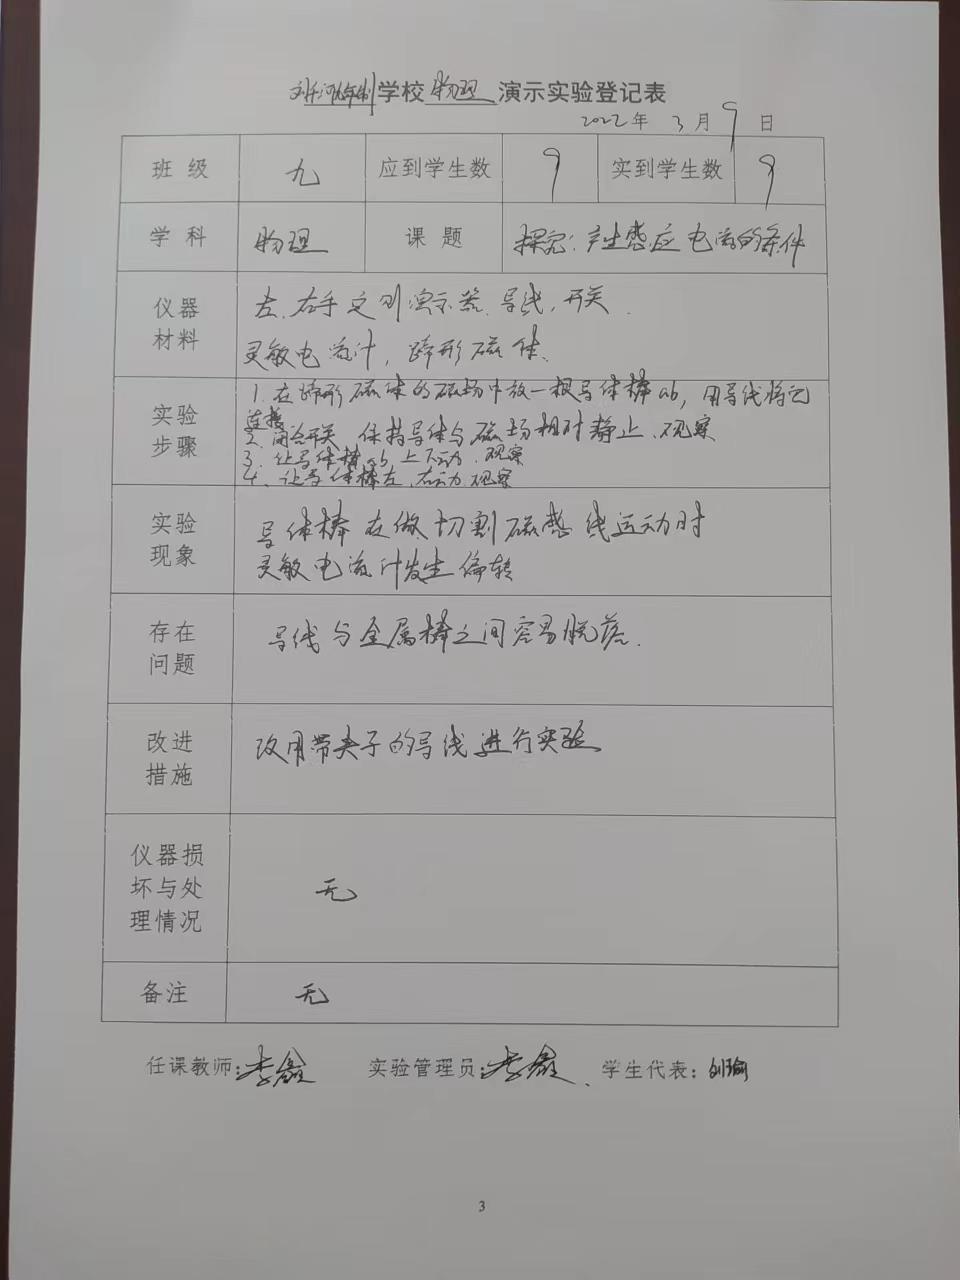 学校 物理 演示实验登记表
2022年 3月9日
班 级 九 应到学生数 9 实到学生数 9
学 科 物理 课 题 探究:产生感应电流的条件
仪器 左、右手定则演示器、导线,开关
材料 灵敏电流计,蹄形磁体、
1、在蹄形磁体的磁场中放一根导体棒ab,用导线将它
连接
实验 2、闭合开关,保持导体与磁场相对静止、观察
步骤 3、让导体棒ab上下动、观察
4、让导体棒左、右动、观察
实验 导体棒在做切割磁感线运动时
现象 灵敏电流计发生偏转
存在 导线与金属棒之间容易脱落.
问题
改进 改用带夹子的导线进行实验
措施
仪器损
坏与处 无
理情况
备注 无
任课教师:李鑫 实验管理员:李鑫、学生代表:刘瑜
3